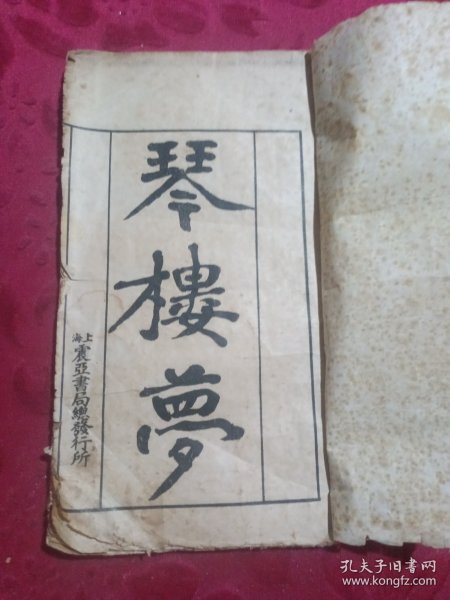 琴樓夢
上海震亞書局總發行所
孔夫子旧书网
www.kongfz.com